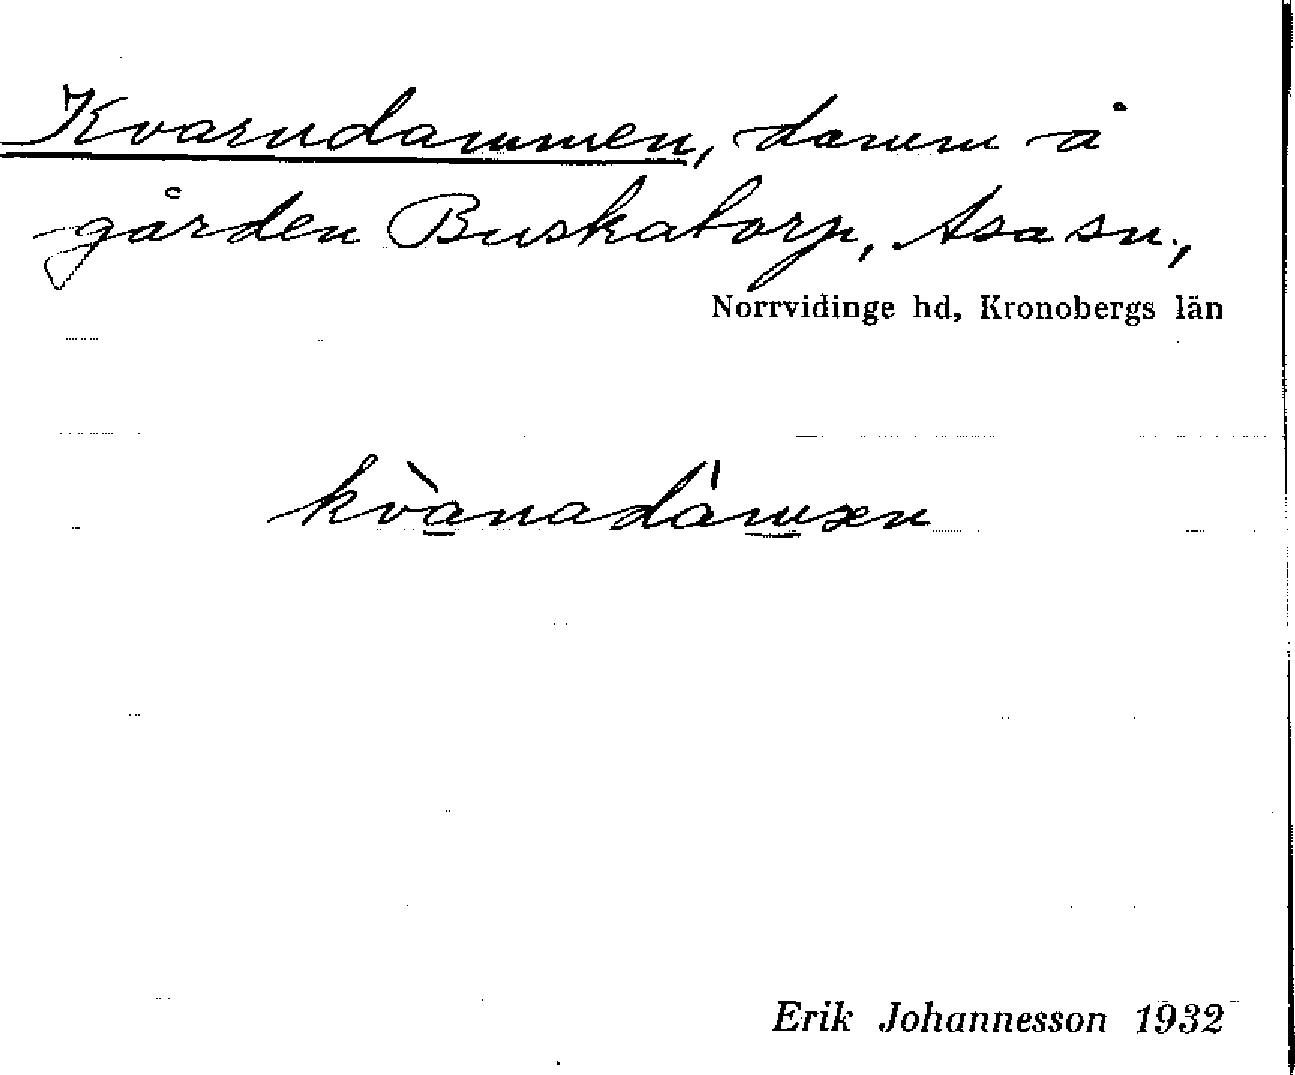 Kvarndammen, damm å
gården Buskatorp, Asa sn.,
Norrvidinge hd, Kronobergs län
kvànadám̲ən
Erik Johannesson 1932